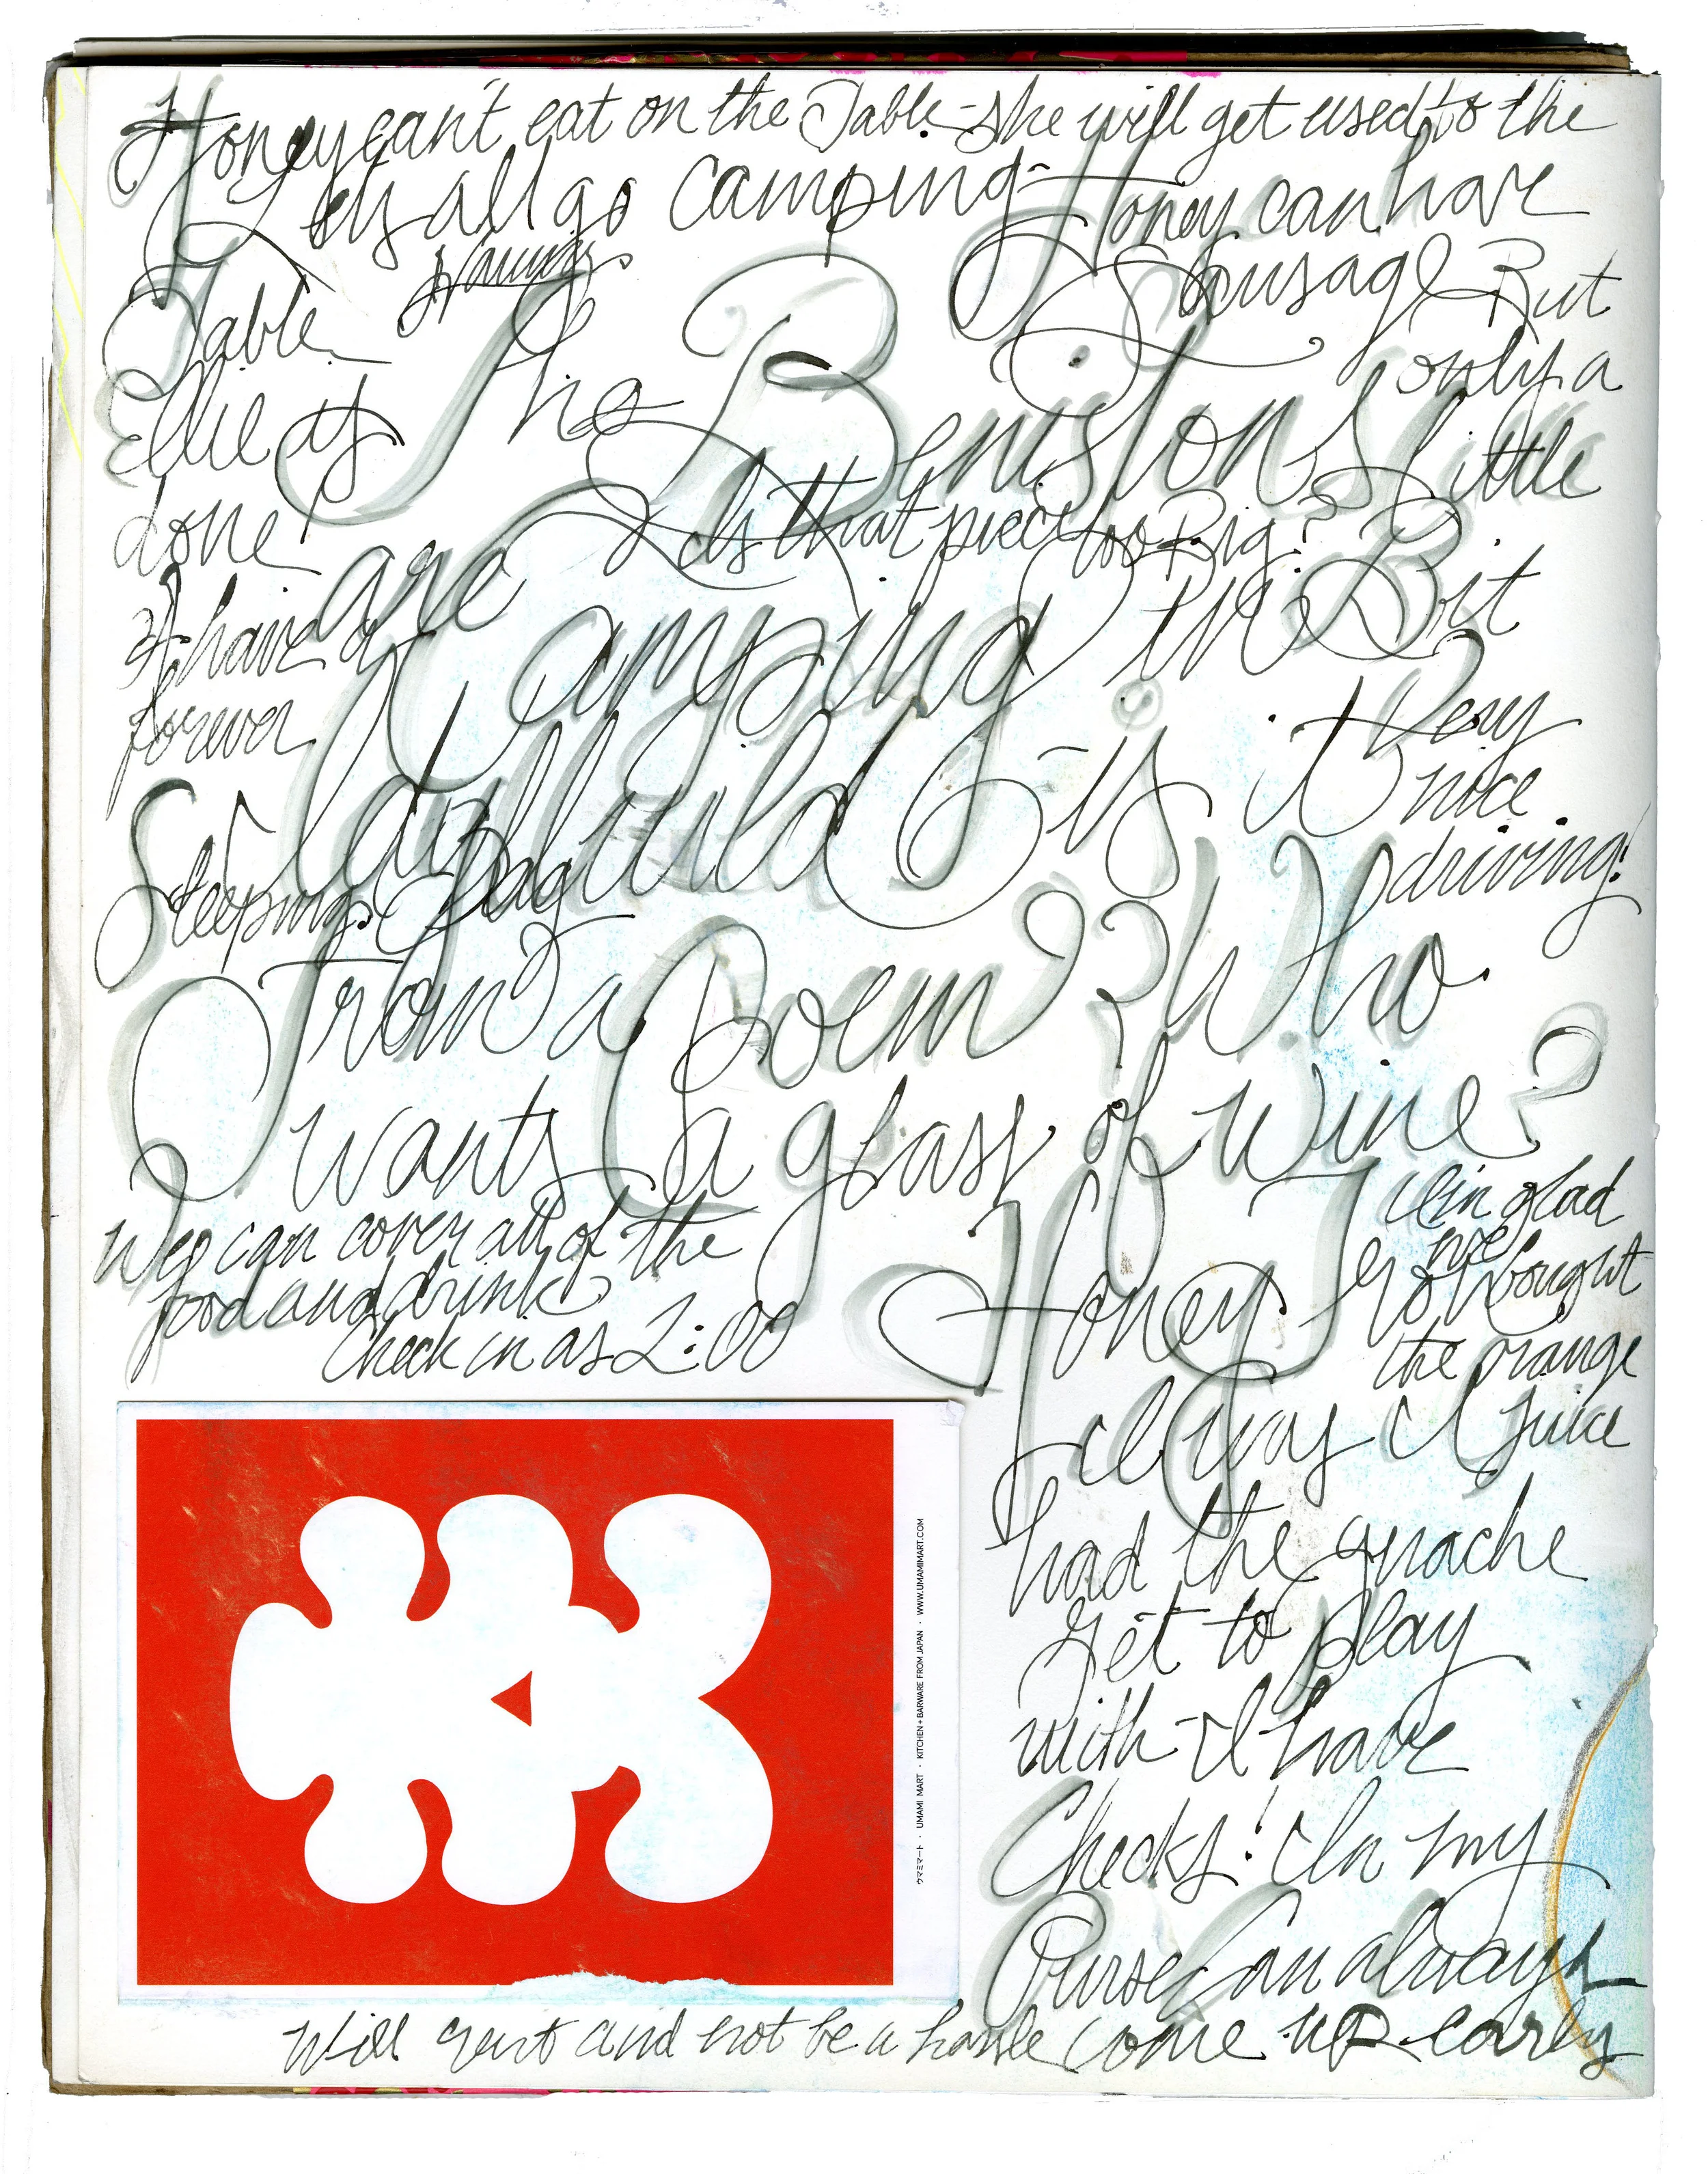 Honey can't eat on the Table - she will get used to the
Lets all go camping - Honey can have
Table
Sausage But
only a
Ellie if
The Benistons
little
done
Is that piece too Big?
are Camping in
Bit
I have a
forever
Very
nice
driving!
Sleeping Bag
is it
From a Poem?? Who
wants a glass of wine?
We can cover all of the
food and drink
Check in as 2:00
I'm glad
we
bought
the orange
Juice
Honey
always
had the guache
get to play
with - I have
Checks! In my
Purse Can always
Will and not be a hassle come up early
ウマミマート · UMAMI MART · KITCHEN + BARWARE FROM JAPAN · WWW.UMAMIMART.COM